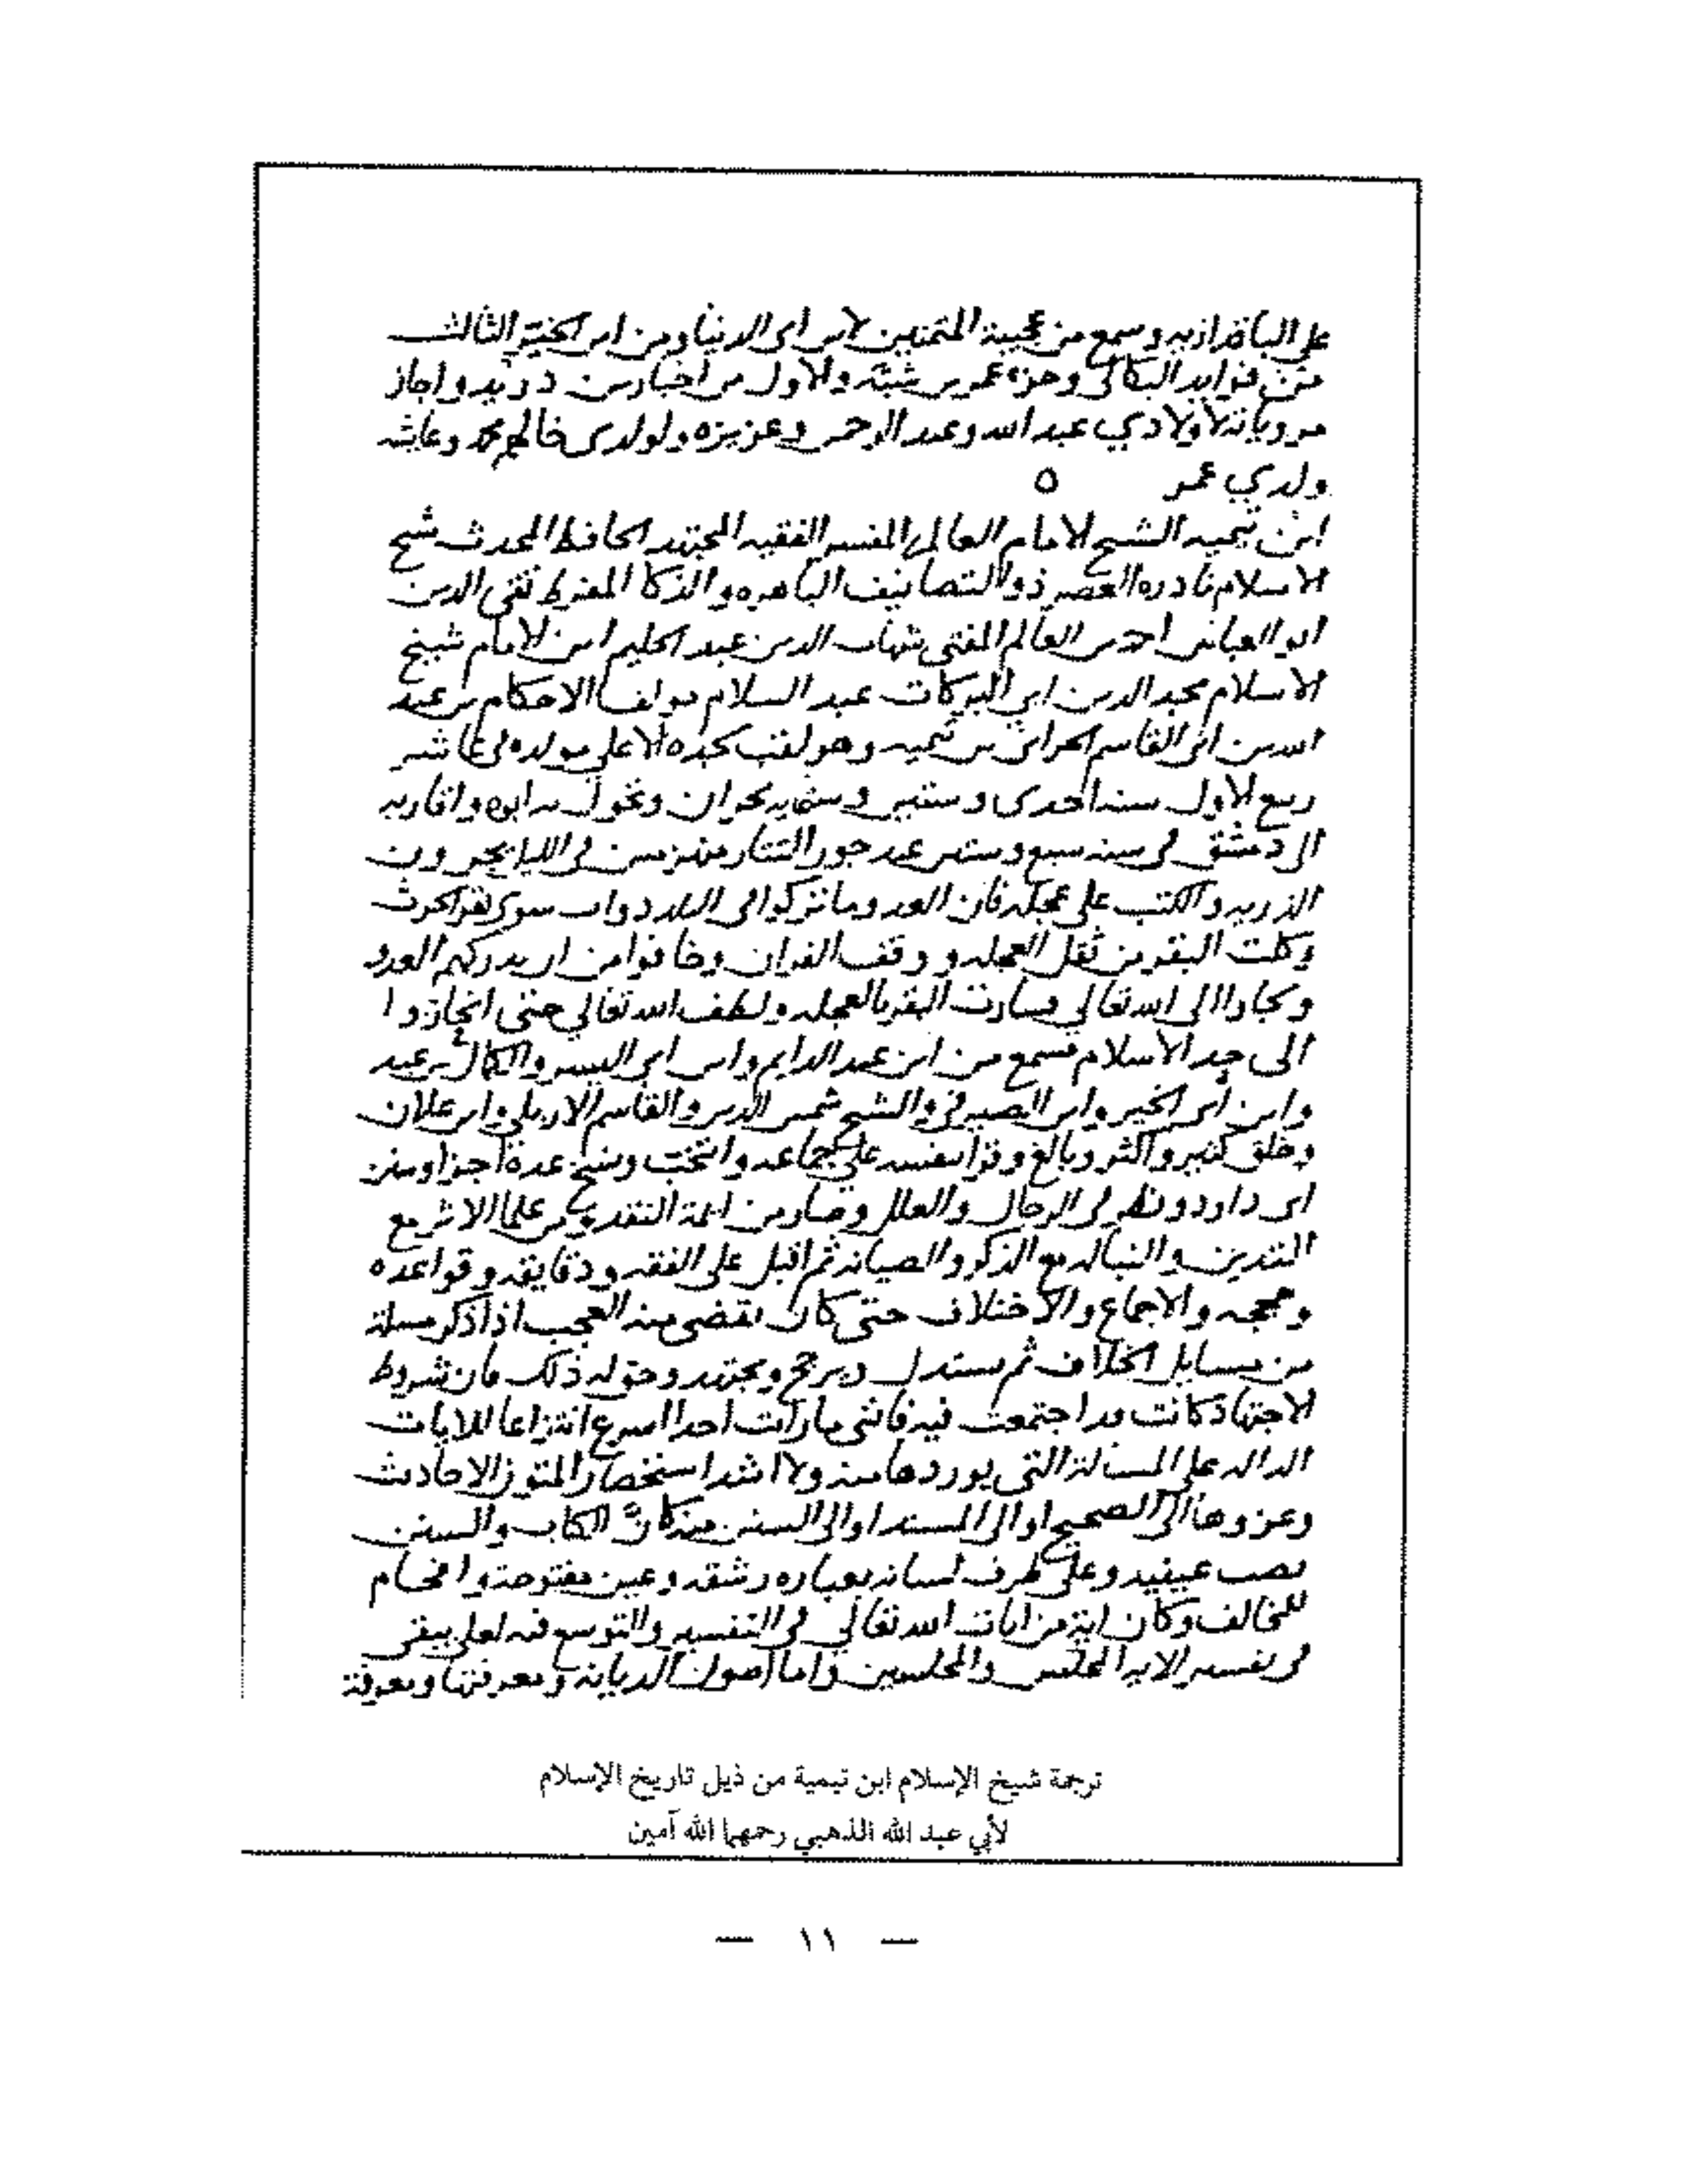 على الباقدازيه وسمع من مجيبة المتمنين لابن ابي الدنيا ومن ابن الثالث
من فوايد البكالي وجزء عمر بن شبة والاول من اخبار بن دريد واجاز
مروياته لاولادي عبد الله وعبد الرحمن وعزيزه ولولدي خالهم محمد وعايشه
ولدي عمر ٥
ابن تيميه الشيخ الامام العالم المفسر الفقيه المجتهد الحافظ المحدث شيخ
الاسلام نادره العصر ذو التصانيف الباهره والذكا المفرط تقي الدين
ابو العباس احمد بن العالم المفتي شهاب الدين عبد الحليم ابن الامام شيخ
الاسلام مجد الدين ابي البركات عبد السلام مولف الاحكام بن عبد
الله بن ابي القاسم الحراني بن تيميه وهو لقب لجده الاعلى مولده في عاشر
ربيع الاول سنه احدى وستين وستمايه بحران وتحول به ابوه واقاربه
الى دمشق في سنه سبع وستين عند جور التتار منهزمين في الليل يجرون
الذريه والكتب على عجله فان العدو ما تركوا في البلد دواب سوى بقر الحرث
وكلت البقر من ثقل العجله ووقف الفران وخافوا من ان يدركهم العدو
ولجاوا الى الله تعالي فسارت البقر بالعجله ولطف الله تعالي حتى انحازوا
الى حد الاسلام فسمع من ابن عبد الدايم وابن ابي اليسر والكمال بن عبد
وابن ابي الخير وابن الصيرفي والشيخ شمس الدين والقاسم الاربلي وابن علان
وخلق كثير واكثر وبالغ وقرا بنفسه على جماعه وانتخب ونسخ عدة اجزا وسنن
ابي داود ونظر في الرجال والعلل وصار من ايمة النقد ومن علما الاثر مع
التدين والنباله مع الذكر والصيانه ثم اقبل على الفقه ودقايقه وقواعده
وحججه والاجماع والاختلاف حتى كان يقضى منه العجب اذا ذكر مسلة
من مسايل الخلاف ثم يستدل ويرجح ويجتهد وحق له ذلك فان شروط
الاجتهاد كانت قد اجتمعت فيه فانني ما رايت احدا اسرع انتزاعا للايات
الداله على المسالة التي يوردها منه ولا اشد استحضارا لمتون الاحاديث
وعزوها الى الصحيح او الى المسند او الى السنن منه كان الكتاب والسنن
نصب عينيه وعلى طرف لسانه بعباره رشقه وعين مفتوحة وافحام
للمخالف وكان اية من ايات الله تعالي في التفسير والتوسع فيه لعله يبقى
في تفسير الايه المجلس والمجلسين واما اصول الديانه ومعرفتها ومعرفة
ترجمة شيخ الإسلام ابن تيمية من ذيل تاريخ الإسلام
لأبي عبد الله الذهبي رحمهما الله آمين
— ١١ —